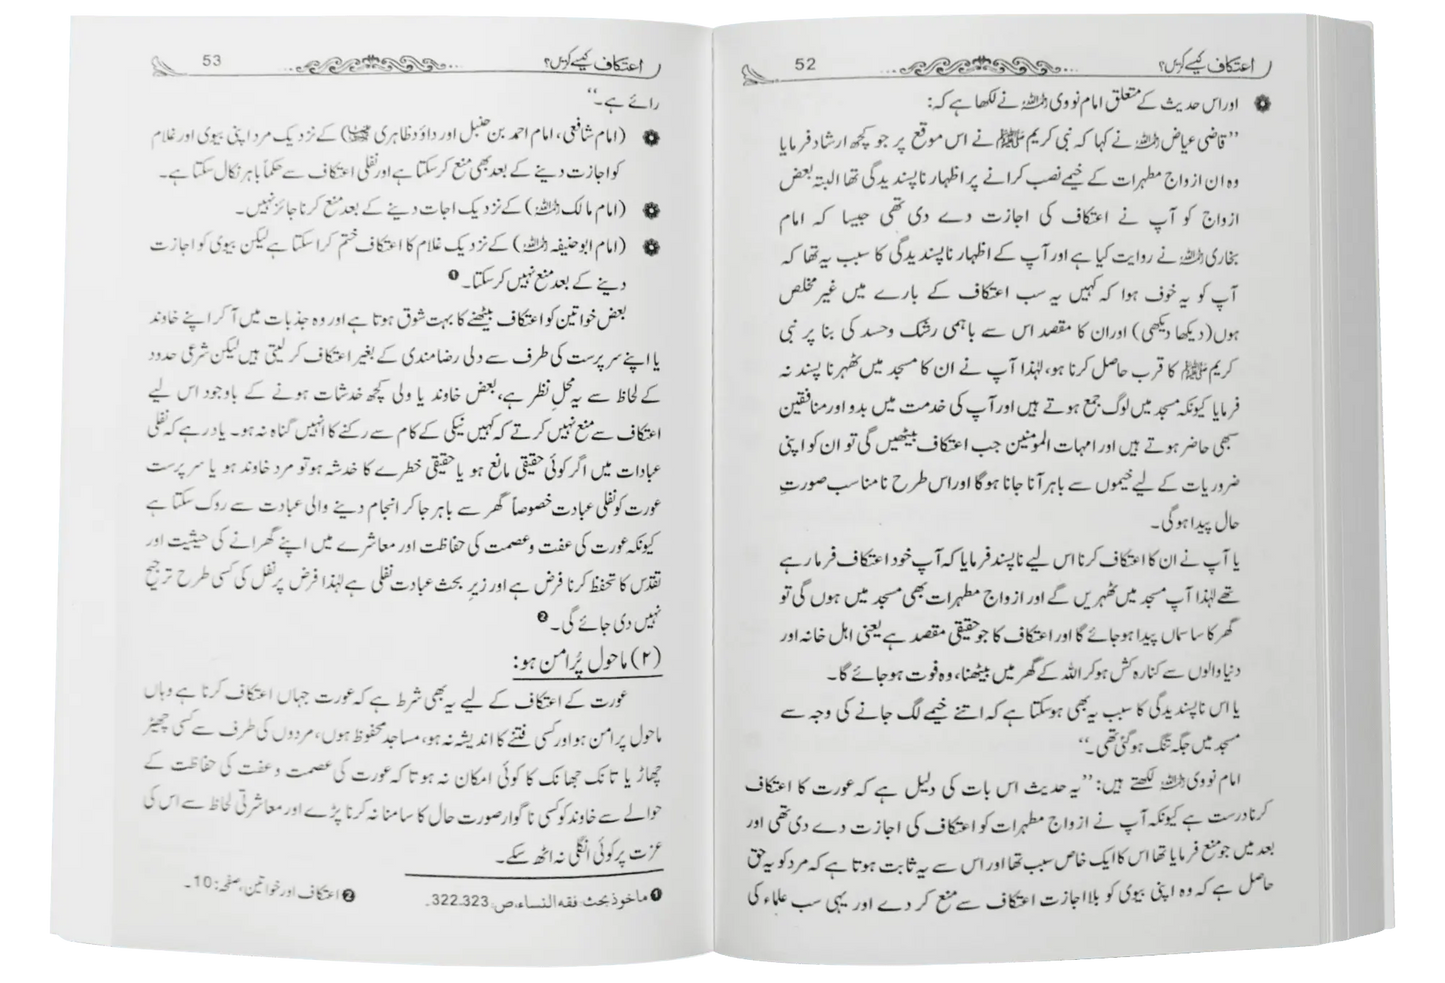 اعتکاف کیسے کریں؟ 52
اور اس حدیث کے متعلق امام نووی رحمہ اللہ نے لکھا ہے کہ:
’’قاضی عیاض رحمہ اللہ نے کہا کہ نبی کریم ﷺ نے اس موقع پر جو کچھ ارشاد فرمایا
وہ ان ازواج مطہرات کے خیمے نصب کرانے پر اظہار ناپسندیدگی تھا البتہ بعض
ازواج کو آپ نے اعتکاف کی اجازت دے دی تھی جیسا کہ امام
بخاری رحمہ اللہ نے روایت کیا ہے اور آپ کے اظہار ناپسندیدگی کا سبب یہ تھا کہ
آپ کو یہ خوف ہوا کہ کہیں یہ سب اعتکاف کے بارے میں غیر مخلص
ہوں (دیکھا دیکھی) اور ان کا مقصد اس سے باہمی رشک وحسد کی بنا پر نبی
کریم ﷺ کا قرب حاصل کرنا ہو، لہٰذا آپ نے ان کا مسجد میں ٹھہرنا پسند نہ
فرمایا کیونکہ مسجد میں لوگ جمع ہوتے ہیں اور آپ کی خدمت میں بدو اور منافقین
سبھی حاضر ہوتے ہیں اور امہات المومنین جب اعتکاف بیٹھیں گی تو ان کو اپنی
ضروریات کے لیے خیموں سے باہر آنا جانا ہوگا اور اس طرح نامناسب صورتِ
حال پیدا ہوگی۔
یا آپ نے ان کا اعتکاف کرنا اس لیے ناپسند فرمایا کہ آپ خود اعتکاف فرما رہے
تھے لہٰذا آپ مسجد میں ٹھہریں گے اور ازواج مطہرات بھی مسجد میں ہوں گی تو
گھر کا سا سماں پیدا ہو جائے گا اور اعتکاف کا جو حقیقی مقصد ہے یعنی اہل خانہ اور
دنیا والوں سے کنارہ کش ہو کر اللہ کے گھر میں بیٹھنا، وہ فوت ہو جائے گا۔
یا اس ناپسندیدگی کا سبب یہ بھی ہوسکتا ہے کہ اتنے خیمے لگ جانے کی وجہ سے
مسجد میں جگہ تنگ ہوگئی تھی۔‘‘
امام نووی رحمہ اللہ لکھتے ہیں: ’’یہ حدیث اس بات کی دلیل ہے کہ عورت کا اعتکاف
کرنا درست ہے کیونکہ آپ نے ازواج مطہرات کو اعتکاف کی اجازت دے دی تھی اور
بعد میں جو منع فرمایا تھا اس کا ایک خاص سبب تھا اور اس سے یہ ثابت ہوتا ہے کہ مرد کو یہ حق
حاصل ہے کہ وہ اپنی بیوی کو بلا اجازت اعتکاف سے منع کر دے اور یہی سب علماء کی
اعتکاف کیسے کریں؟ 53
رائے ہے۔‘‘
(امام شافعی، امام احمد بن حنبل اور داؤد ظاہری) کے نزدیک مرد اپنی بیوی اور غلام
کو اجازت دینے کے بعد بھی منع کر سکتا ہے اور نفلی اعتکاف سے حکماً باہر نکال سکتا ہے۔
(امام مالک رحمہ اللہ) کے نزدیک اجات دینے کے بعد منع کرنا جائز نہیں۔
(امام ابو حنیفہ رحمہ اللہ) کے نزدیک غلام کا اعتکاف ختم کرا سکتا ہے لیکن بیوی کو اجازت
دینے کے بعد منع نہیں کر سکتا۔❶
بعض خواتین کو اعتکاف بیٹھنے کا بہت شوق ہوتا ہے اور وہ جذبات میں آ کر اپنے خاوند
یا اپنے سر پرست کی طرف سے دلی رضامندی کے بغیر اعتکاف کر لیتی ہیں لیکن شرعی حدود
کے لحاظ سے یہ محلِ نظر ہے، بعض خاوند یا ولی کچھ خدشات ہونے کے باوجود اس لیے
اعتکاف سے منع نہیں کرتے کہ کہیں نیکی کے کام سے رکنے کا انہیں گناہ نہ ہو۔ یاد رہے کہ نفلی
عبادات میں اگر کوئی حقیقی مانع ہو یا حقیقی خطرے کا خدشہ ہو تو مرد خاوند ہو یا سر پرست
عورت کو نفلی عبادت خصوصاً گھر سے باہر جا کر انجام دینے والی عبادت سے روک سکتا ہے
کیونکہ عورت کی عفت وعصمت کی حفاظت اور معاشرے میں اپنے گھرانے کی حیثیت اور
تقدّس کا تحفظ کرنا فرض ہے اور زیرِ بحث عبادت نفلی ہے لہٰذا فرض پر نفل کی کسی طرح ترجیح
نہیں دی جائے گی۔❷
(۲) ماحول پُر امن ہو:
عورت کے اعتکاف کے لیے یہ بھی شرط ہے کہ عورت جہاں اعتکاف کرنا ہے وہاں
ماحول پر امن ہو اور کسی فتنے کا اندیشہ نہ ہو، مساجد محفوظ ہوں، مردوں کی طرف سے کسی چھیڑ
چھاڑ یا تانک جھانک کا کوئی امکان نہ ہو تا کہ عورت کی عصمت وعفت کی حفاظت کے
حوالے سے خاوند کو کسی ناگوار صورت حال کا سامنا نہ کرنا پڑے اور معاشرتی لحاظ سے اس کی
عزت پر کوئی انگلی نہ اٹھ سکے۔
❶ ماخوذ بحث: فقه النساء، ص: 322،323۔ ❷ اعتکاف اور خواتین، صفحہ: 10۔